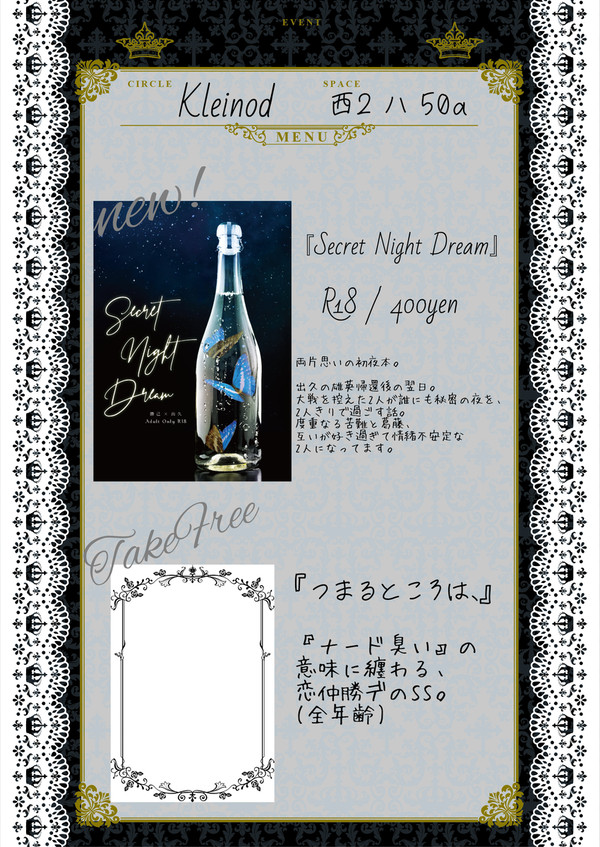 EVENT
CIRCLE
Kleinod
SPACE
西2 ハ 50a
MENU
new!
『Secret Night Dream』
R18 / 400yen
Secret
Night
Dream
勝己 × 出久
Adult Only R18
両片思いの初夜本。
出久の雄英帰還後の翌日。
大戦を控えた2人が誰にも秘密の夜を、
2人きりで過ごす話。
度重なる苦難と葛藤、
互いが好き過ぎて情緒不安定な
2人になってます。
TakeFree
『つまるところは、』
『ナード臭い』の
意味に纏わる、
恋仲勝デのSS。
(全年齢)